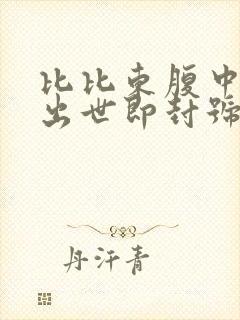 比比东腹中
出世即封號
丹汗青